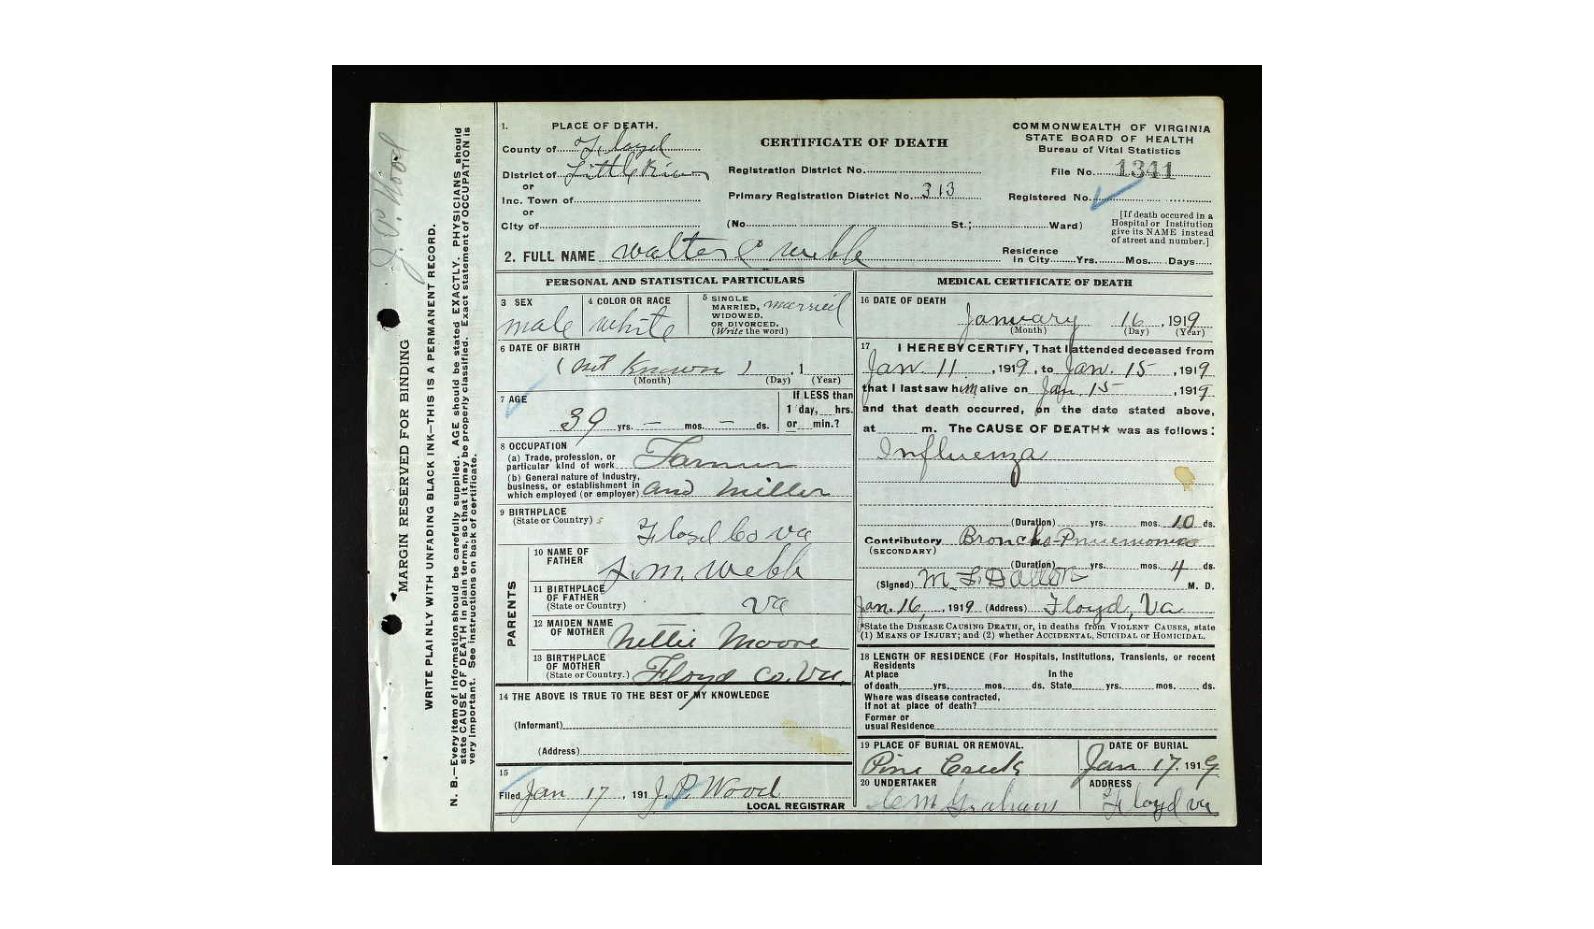 J. P. Wood
MARGIN RESERVED FOR BINDING
WRITE PLAINLY WITH UNFADING BLACK INK—THIS IS A PERMANENT RECORD.
N. B.—Every item of information should be carefully supplied. AGE should be stated EXACTLY. PHYSICIANS should
state CAUSE OF DEATH in plain terms, so that it may be properly classified. Exact statement of OCCUPATION is
very important. See instructions on back of certificate.
1. PLACE OF DEATH.
County of Floyd
District of Little River
or
Inc. Town of
or
City of
CERTIFICATE OF DEATH
Registration District No.
Primary Registration District No. 313
(No. St.; Ward)
COMMONWEALTH OF VIRGINIA
STATE BOARD OF HEALTH
Bureau of Vital Statistics
File No. 1341
Registered No.
[If death occured in a
Hospital or Institution
give its NAME instead
of street and number.]
2. FULL NAME Walter C Webb
Residence
in City Yrs. Mos. Days
PERSONAL AND STATISTICAL PARTICULARS
3 SEX
male
4 COLOR OR RACE
white
5 SINGLE
MARRIED,
WIDOWED.
OR DIVORCED.
(Write the word)
married
6 DATE OF BIRTH
(not known) , 1
(Month) (Day) (Year)
7 AGE
39 yrs. — mos. — ds.
If LESS than
1 day, hrs.
or min.?
8 OCCUPATION
(a) Trade, profession, or
particular kind of work Farmer
(b) General nature of Industry,
business, or establishment in
which employed (or employer) and miller
9 BIRTHPLACE
(State or Country)
Floyd Co Va
PARENTS
10 NAME OF
FATHER
M. Webb
11 BIRTHPLACE
OF FATHER
(State or Country)
Va
12 MAIDEN NAME
OF MOTHER
Nettie Moore
13 BIRTHPLACE
OF MOTHER
(State or Country.) Floyd Co. Va.
14 THE ABOVE IS TRUE TO THE BEST OF MY KNOWLEDGE
(Informant)
(Address)
15
Filed Jan 17 , 191 J. P. Wood
LOCAL REGISTRAR
MEDICAL CERTIFICATE OF DEATH
16 DATE OF DEATH
January 16 , 1919
(Month) (Day) (Year)
17 I HEREBY CERTIFY, That I attended deceased from
Jan. 11 , 1919 , to Jan. 15 , 1919
that I last saw him alive on Jan 15 , 1919
and that death occurred, on the date stated above,
at m. The CAUSE OF DEATH★ was as follows:
Influenza
(Duration) yrs. mos. 10 ds.
Contributory Broncho-Pneumonia
(SECONDARY)
(Duration) yrs. mos. 4 ds.
(Signed) M. L. Dalton M. D.
Jan. 16, , 1919 (Address) Floyd, Va
*State the DISEASE CAUSING DEATH, or, in deaths from VIOLENT CAUSES, state
(1) MEANS OF INJURY; and (2) whether ACCIDENTAL, SUICIDAL or HOMICIDAL.
18 LENGTH OF RESIDENCE (For Hospitals, Institutions, Transients, or recent
Residents
At place In the
of death yrs. mos. ds. State yrs. mos. ds.
Where was disease contracted,
If not at place of death?
Former or
usual Residence
19 PLACE OF BURIAL OR REMOVAL.
Pine Creek
DATE OF BURIAL
Jan 17. 1919
20 UNDERTAKER
Graham
ADDRESS
Floyd Va